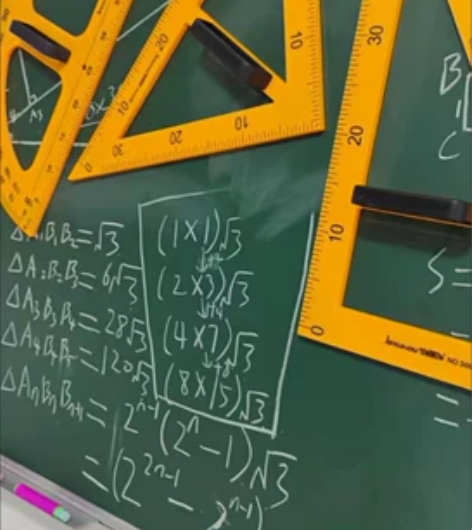 △A₁B₁B₂=√3
△A₂B₂B₃=6√3
△A₃B₃B₄=28√3
△A₄B₄B₅=120√3
△AₙBₙBₙ₊₁=2ⁿ⁻¹(2ⁿ-1)√3
=(2²ⁿ⁻¹-2ⁿ⁻¹)
(1×1)√3
↓+2
(2×3)√3
↓+4
(4×7)√3
↓+8
(8×15)√3
B
C
S=
=
A3
10
20
30
20
10
10
0
10
20
30